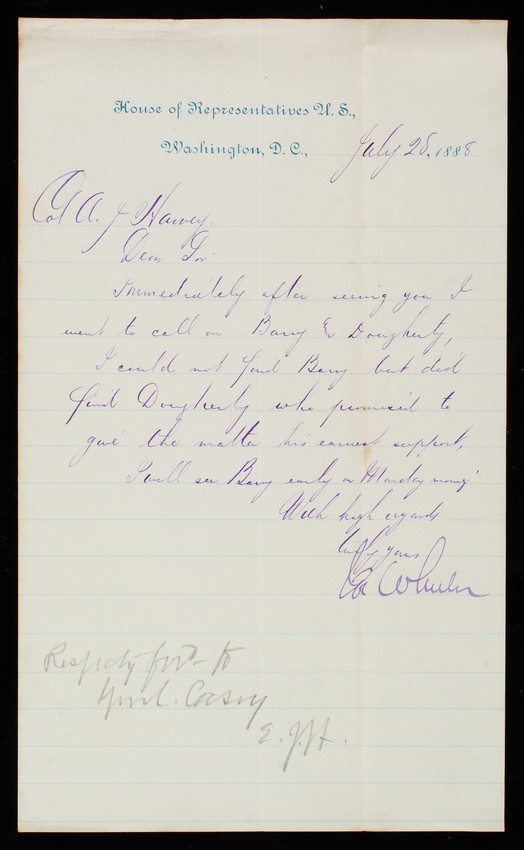 House of Representatives U.S.,
Washington, D.C., July 28, 1888.
Col A. J Harvey.
Dear Sir
Immediately after seeing you I
went to call on Barry & Dougherty,
I could not find Barry but did
find Dougherty who promised to
give the matter his earnest support,
I will see Barry early on Monday morng
With high regards
truly yours
Wheeler
Respcty ford to
Genl. Casey
E. J. H.